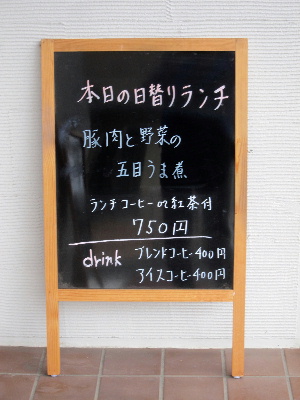 本日の日替りランチ
豚肉と野菜の
五目うま煮
ランチコーヒーor紅茶付
750円
drink ブレンドコーヒー400円
アイスコーヒー400円